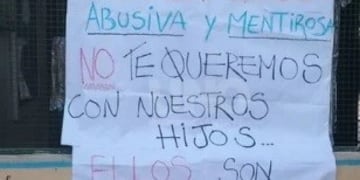 ABUSIVA Y MENTIROSA
NO TE QUEREMOS
CON NUESTROS
HIJOS...
ELLOS SON